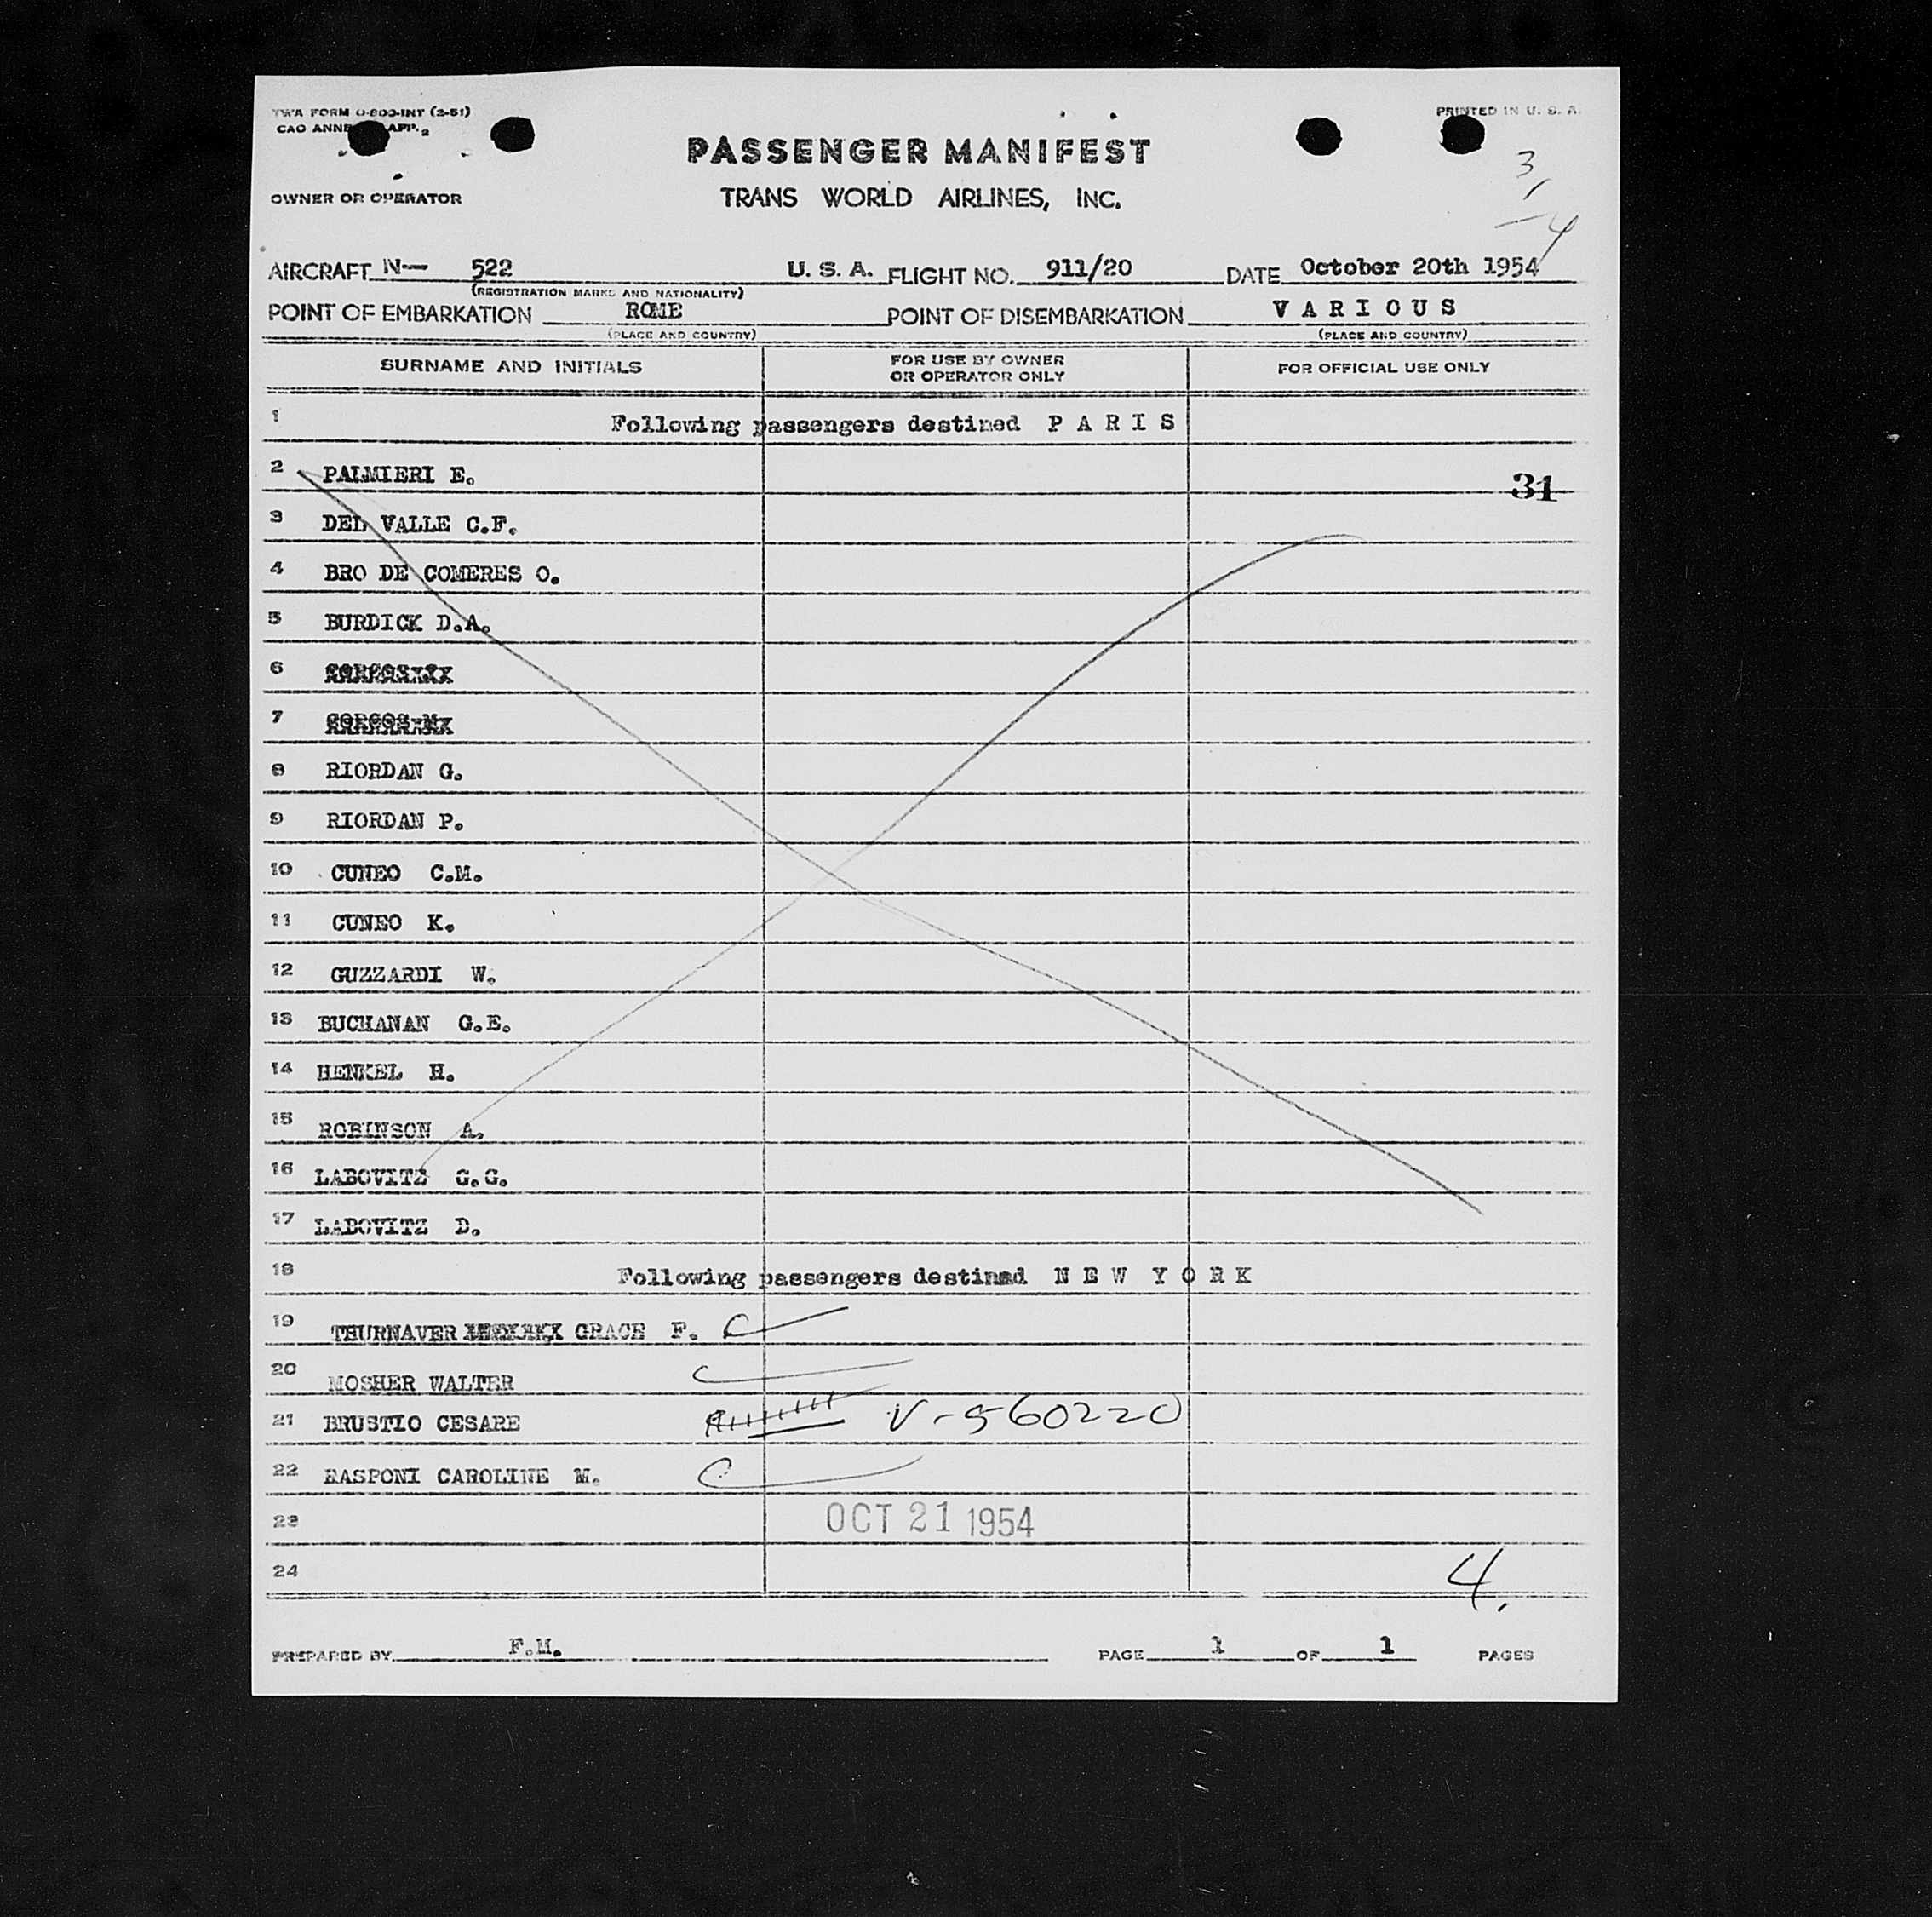 TWA FORM O-800-INT (2-51)
PRINTED IN U. S. A.
PASSENGER MANIFEST
OWNER OR OPERATOR
TRANS WORLD AIRLINES, INC.
3/
4
AIRCRAFT N— 522 U. S. A. FLIGHT NO. 911/20 DATE October 20th 1954
(REGISTRATION MARKS AND NATIONALITY)
POINT OF EMBARKATION ROME POINT OF DISEMBARKATION V A R I O U S
(PLACE AND COUNTRY) (PLACE AND COUNTRY)
SURNAME AND INITIALS FOR USE BY OWNER OR OPERATOR ONLY FOR OFFICIAL USE ONLY
1 Following passengers destined P A R I S
2 PALMIERI E.
31
3 DEL VALLE C.F.
4 BRO DE COMERES O.
5 BURDICK D.A.
6
7
8 RIORDAN G.
9 RIORDAN P.
10 CUNEO C.M.
11 CUNEO K.
12 GUZZARDI W.
13 BUCHANAN G.E.
14 HENKEL H.
15 ROBINSON A.
16 LABOVITZ G.G.
17 LABOVITZ D.
18 Following passengers destined N E W Y O R K
19 THURNAVER GRACE F. C
20 MOSHER WALTER C
21 BRUSTIO CESARE V-560220
22 RASPONI CAROLINE M. C
23 OCT 21 1954
24 4.
PREPARED BY F.M. PAGE 1 OF 1 PAGES